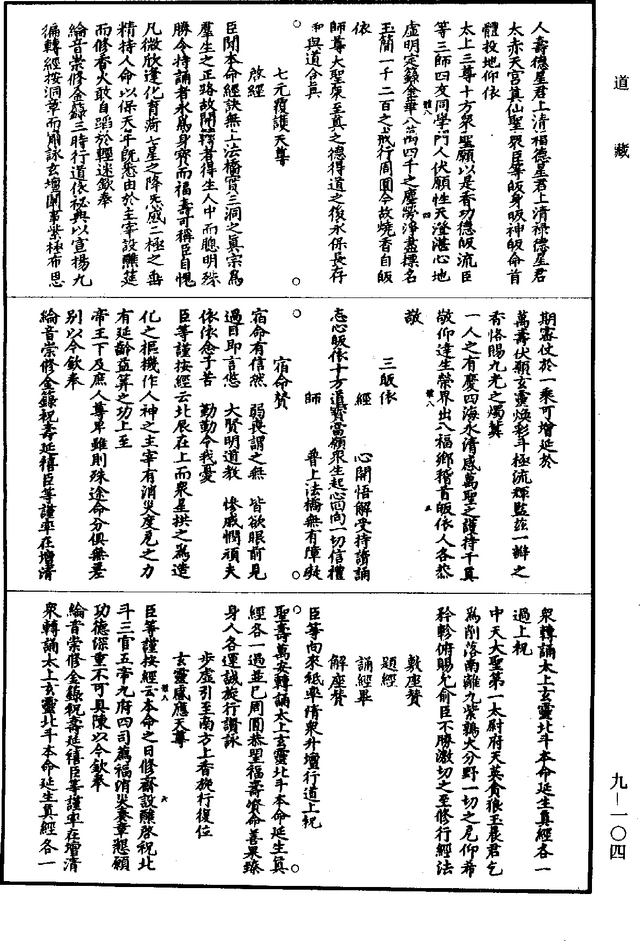 道藏
人壽德星君上清福德星君上清祿德星君
太赤天宮真仙聖衆臣等皈身皈神皈命首
體投地仰依
太上三尊十方衆聖願以是香功德皈流臣
等三師四友同學門人伏願性天澄湛心地
虛明定籙金華八萬四千之塵勞淨盡標名
玉簡一千二百之戒行周圓令故燒香自皈
依
師尊大聖衆至真之德得道之後永保長存
和與道合真
七元覆護天尊
啓經
臣聞本命經訣無上法橋實三洞之真宗爲
羣生之正路故開擇者得生人中而聰明殊
勝令持誦者永爲身寶而福壽可稱臣自愧
凡微欣逢化育荷七星之降炁感二極之垂
精持人命以保天年既悉由於主宰設醮筵
而修香火敢自蹈於輕迷欽奉
綸音崇修金籙三時行道依祕典以宣揚九
徧轉經按洞章而開詠玄壇闢事紫極布恩
期審伏於一乘可增延於
萬壽伏願玄靈煥彩斗極流輝監茲一瓣之
香恪賜九光之燭冀
一人之有慶四海永清感萬聖之護持千真
敬仰達生榮界出八福鄉稽首皈依人各恭
敬
三皈依
經 心開悟解受持讀誦
志心皈依十方道寶當願衆生起心回向一切信禮
師 普上法橋無有障礙
宿命贊
宿命有信然 弱喪謂之無 皆欲眼前見
過目即言悠 大賢明道教 慘慼憫頑夫
依依念子苦 勤勤令我憂
臣等謹按經云北辰在上而衆星拱之爲造
化之樞機作人神之主宰有消災度厄之力
有延齡益算之功上至
帝王下及庶人尊卑雖則殊途命分俱無差
別以今欽奉
綸音崇修金籙祝壽延禧臣等謹率在壇清
衆轉誦太上玄靈北斗本命延生真經各一
過上祝
中天大聖第一太尉府天英貪狼玉晨君乞
爲削落南離九紫鶉火分野一切之厄仰希
矜軫俯賜允俞臣不勝激切之至修行經法
敷座贊
題經
誦經畢
解座贊
臣等向來祗率清衆升壇行道上祝
聖壽萬安轉誦太上玄靈北斗本命延生真
經各一過並已周圓恭望福壽資命善果臻
身人各運誠旋行讚詠
步虛引至南方上香旋行復位
玄靈感應天尊
臣等謹按經云本命之日修齋設醮啓祝北
斗三官五帝九府四司薦福消災奏章懇願
功德深重不可具陳以今欽奉
綸音崇修金籙祝壽延禧臣等謹率在壇清
衆轉誦太上玄靈北斗本命延生真經各一
九—一〇四